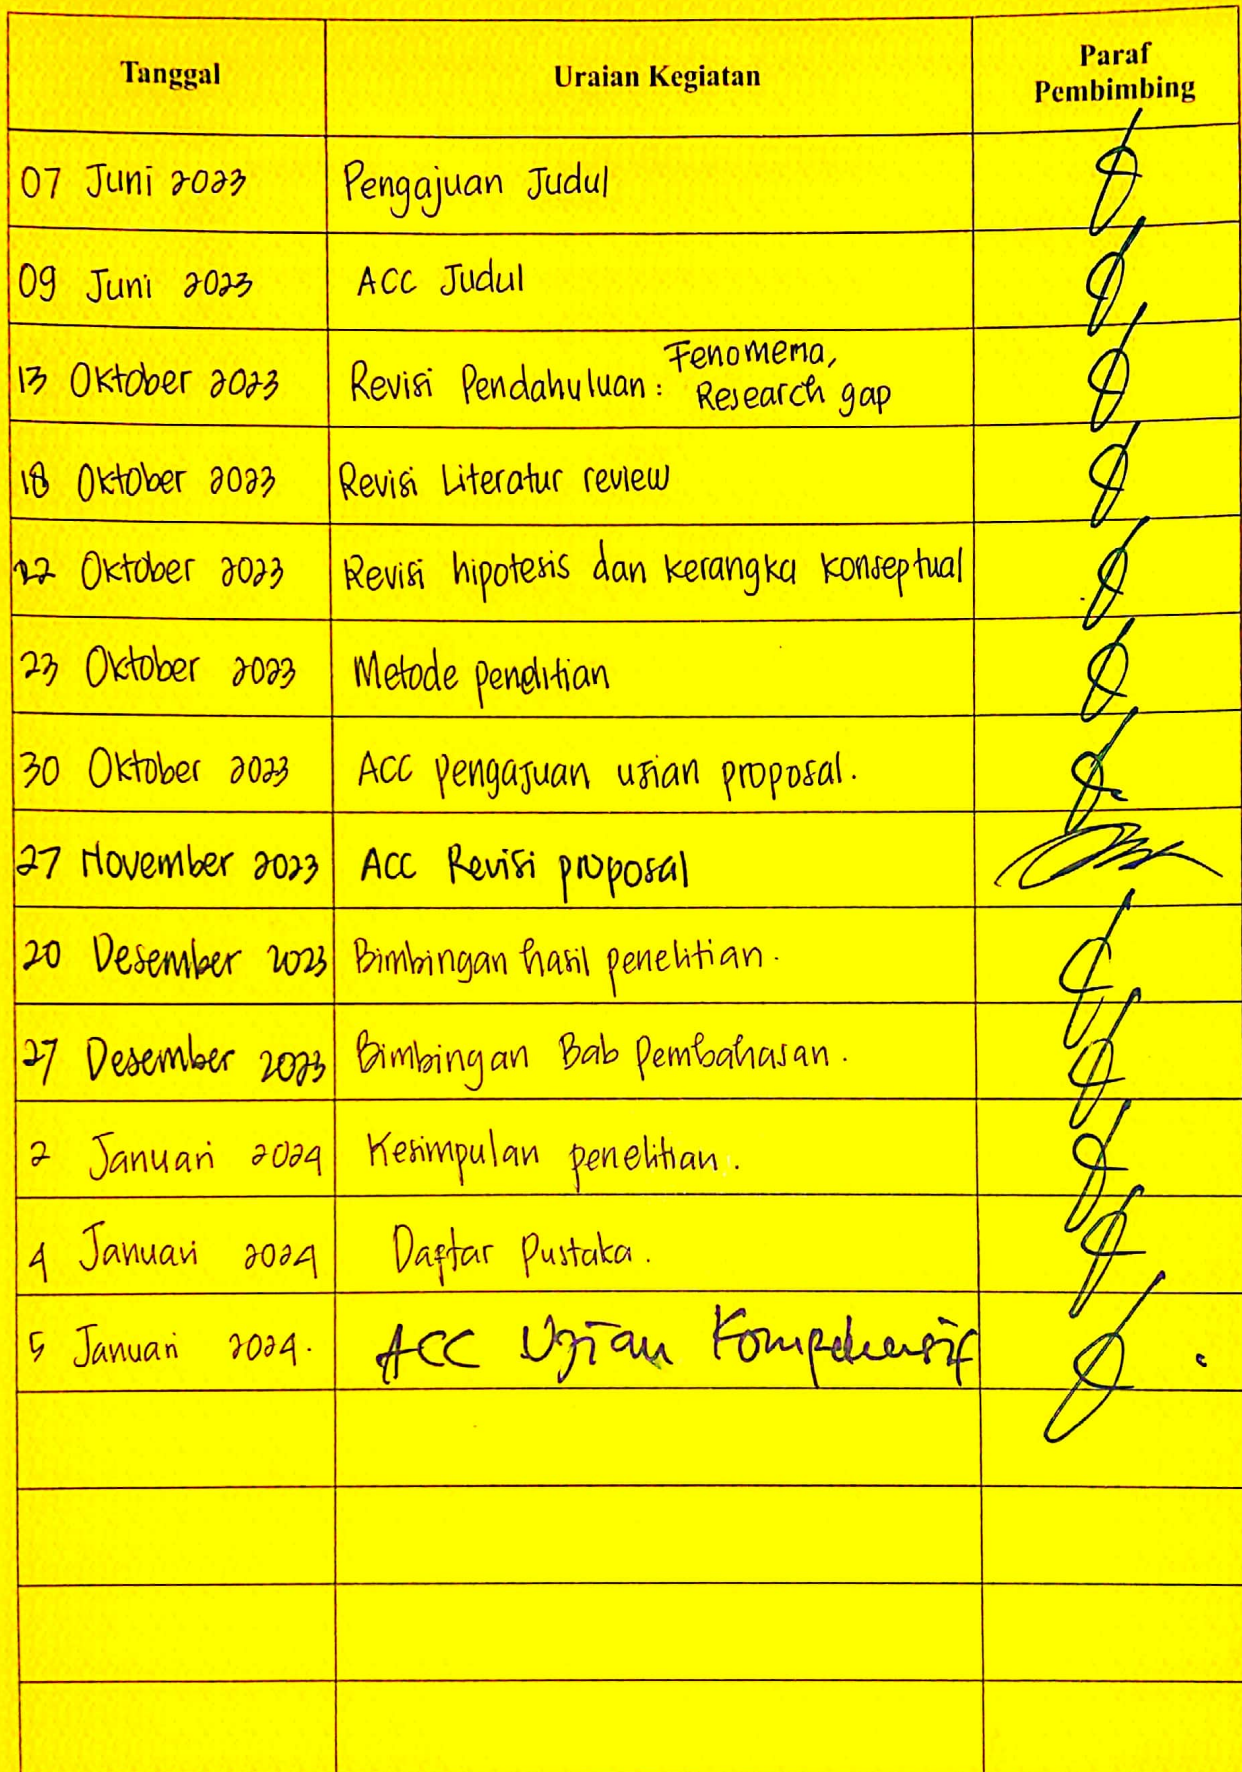 Tanggal Uraian Kegiatan Paraf Pembimbing
07 Juni 2023 Pengajuan Judul
09 Juni 2023 ACC Judul
13 Oktober 2023 Revisi Pendahuluan: Fenomema, Research gap
18 Oktober 2023 Revisi Literatur review
22 Oktober 2023 Revisi hipotesis dan kerangka konseptual
23 Oktober 2023 Metode penelitian
30 Oktober 2023 ACC pengajuan ujian proposal.
27 November 2023 ACC Revisi proposal
20 Desember 2023 Bimbingan hasil penelitian.
27 Desember 2023 Bimbingan Bab Pembahasan.
2 Januari 2024 Kesimpulan penelitian.
4 Januari 2024 Daftar Pustaka.
5 Januari 2024. ACC Ujian Komprehensif